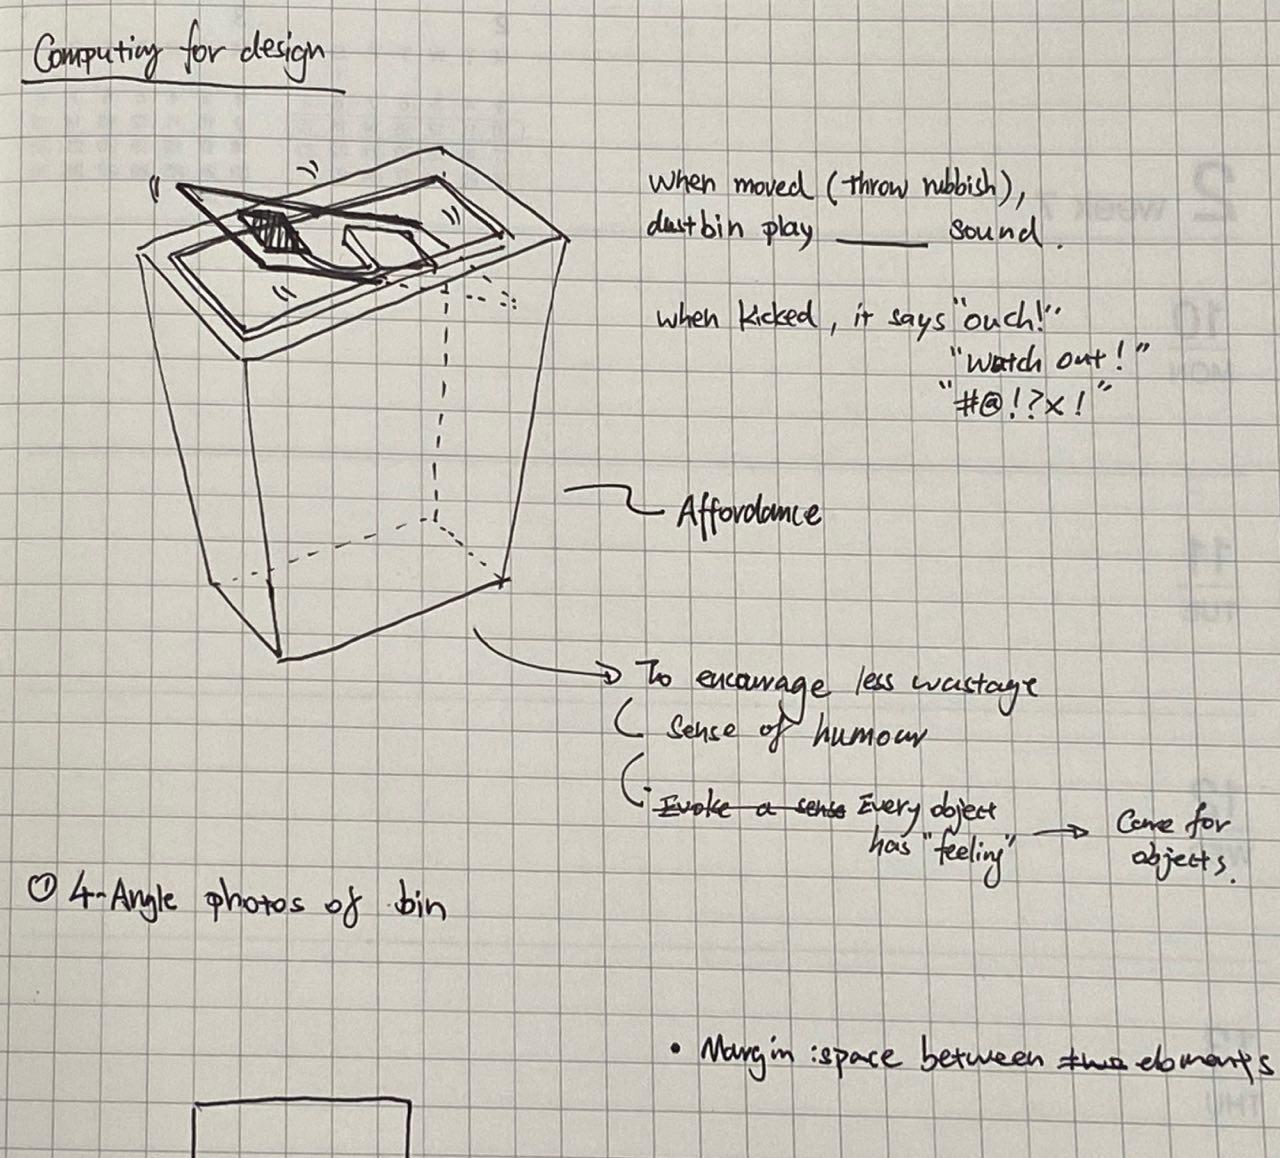 Computing for design
when moved (throw rubbish),
dustbin play ______ sound.
when kicked, it says "ouch!"
"Watch out!"
"#@!?x!"
Affordance
To encourage less wastage
sense of humour
Evoke a sense Every object
has "feeling" → Care for
objects.
① 4-Angle photos of bin
• Margin : space between two elements
2 WEEK 7
10
MON
11
TUE
12
THU